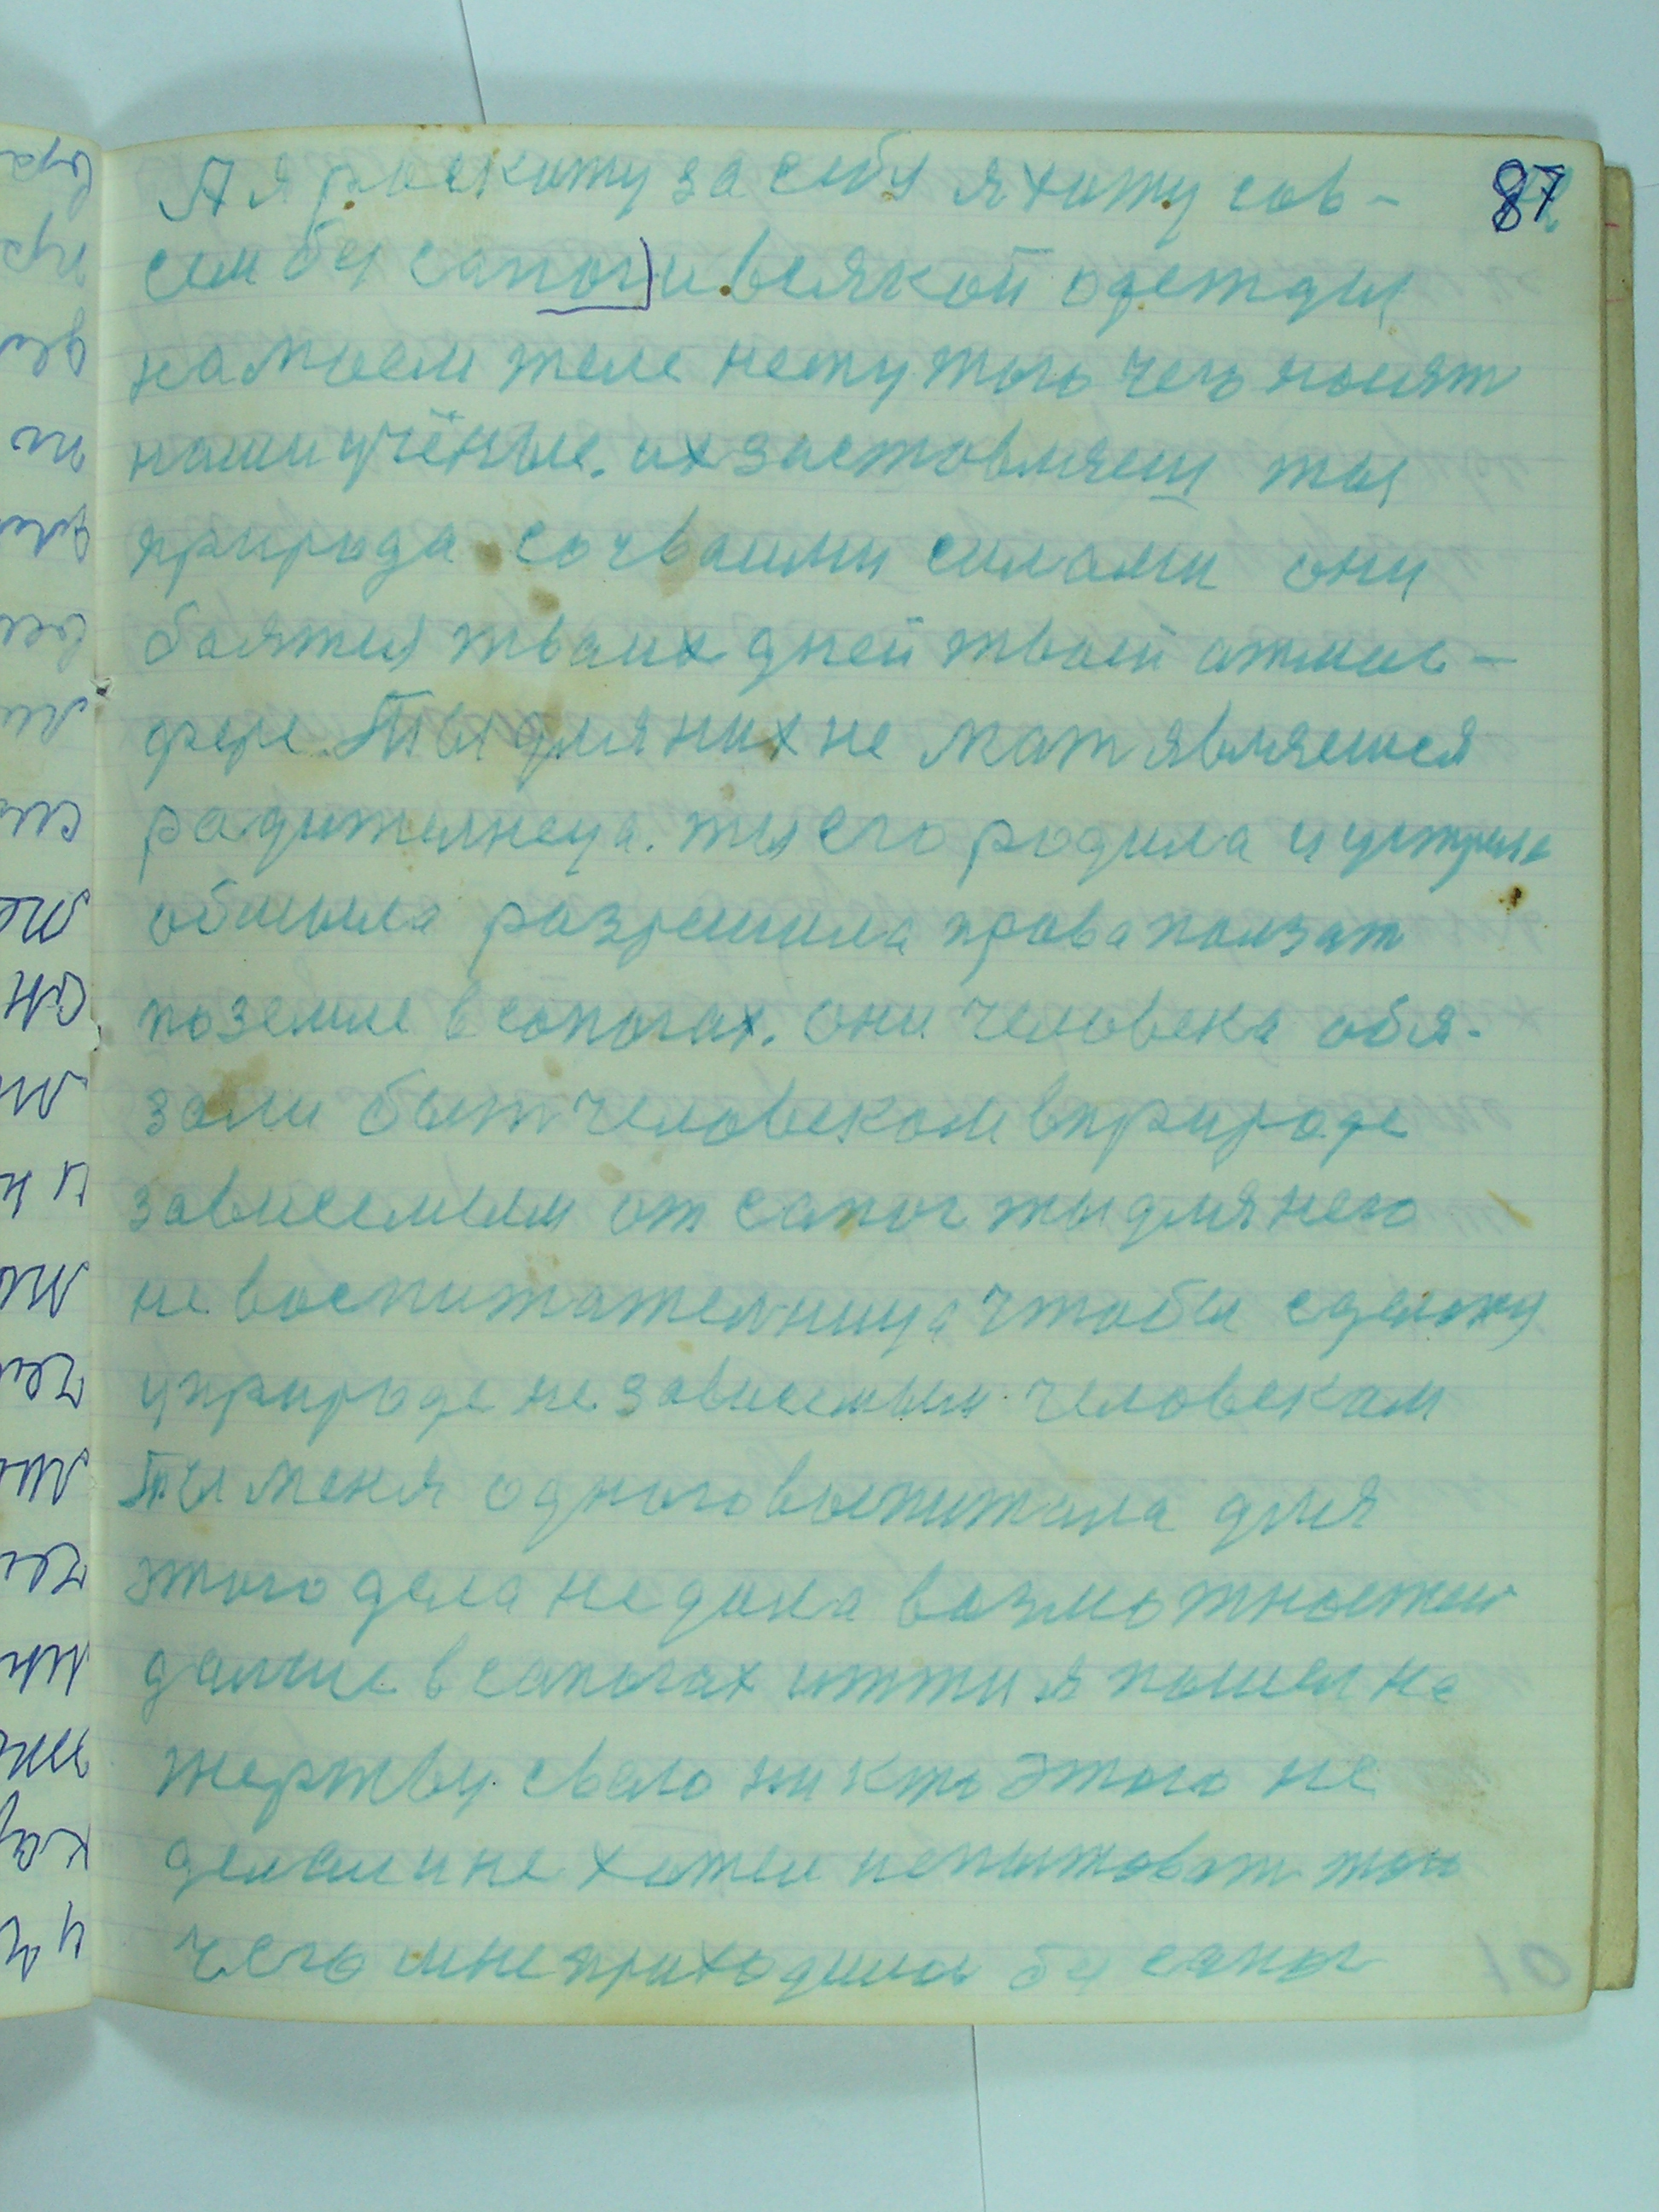 87
А я роскожу за себя я хожу сов-
сем без сапог и всякой одежды
на моем теле нету того чего носят
наши учёные. их заставляеш ты
природа сочваими силами они
боятся тваих дней твоей атмос-
фере. Ты для них не мат являешся
радителнеца. ты его родила и
обмыла разрешила права ползат
по земле в сопогах. они человека обя-
зали быт человеком в природе
зависемым от сапог ты для него
не воспитателница чтобы
у природе не зависемым человекам
Ты меня одного воспитала для
этого дела не дала возможностей
далше в сапогах итти я пошел на
жертву свею ни кто этого не
делал и не хотел испытоват
чего мне приходилос без сапог